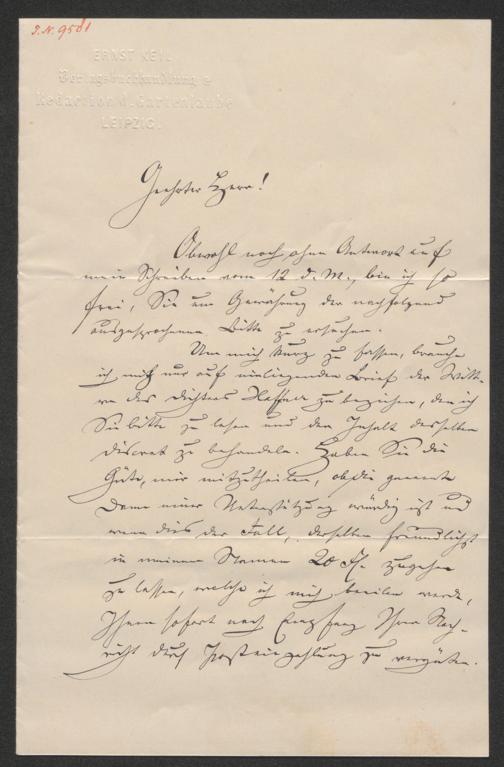 J.N. 9581
ERNST KEIL
Verlagsbuchhandlung &
Redaction d. Gartenlaube
LEIPZIG.
Geehrter Herr!
Obwohl noch ohne Antwort auf
mein Schreiben vom 12 d. M., bin ich so
frei, Sie um Gewährung der nachfolgend
ausgesprochenen Bitte zu ersuchen.
Um mich kurz zu fassen, brauche
ich mich nur auf einliegenden Brief der Witt-
we des Dichters zu beziehen, den ich
Sie bitte zu lesen und den Inhalt desselben
discret zu behandeln. Haben Sie die
Güte, mir mitzutheilen, ob die genannte
Dame einer Unterstützung würdig ist und
wenn dies der Fall, derselben freundlichst
in meinem Namen 20 fl. zugehen
zu lassen, welche ich mich beeilen werde,
Ihnen sofort nach Empfang Ihrer Nach-
richt durch Posteinzahlung zu vergüten.